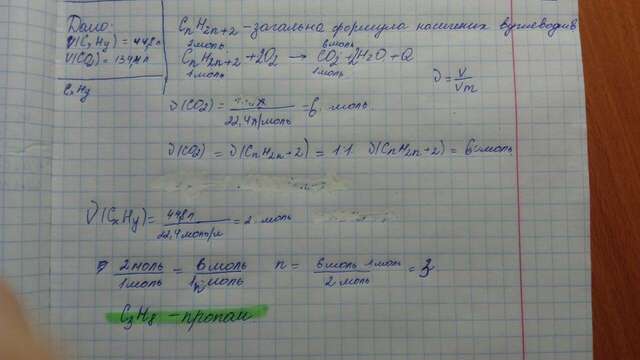 Дано:
V(CxHy) = 44,8л
V(CO2) = 134,4л
CxHy
CnH2n+2 - загальна формула насичених вуглеводнів
2моль 6моль
CnH2n+2 + 2O2 → CO2 + 2H2O + Q
1моль 1моль
ν = V/Vm
ν(CO2) = /22,4л/моль = 6 моль
ν(CO2) = ν(CnH2n+2) = 1:1 ν(CnH2n+2) = 6 моль
ν(CxHy) = 44,8л/22,4моль/л = 2 моль
2моль/1моль = 6моль/1n моль n = 6моль 1моль/2 моль = 3
C3H8 - пропан